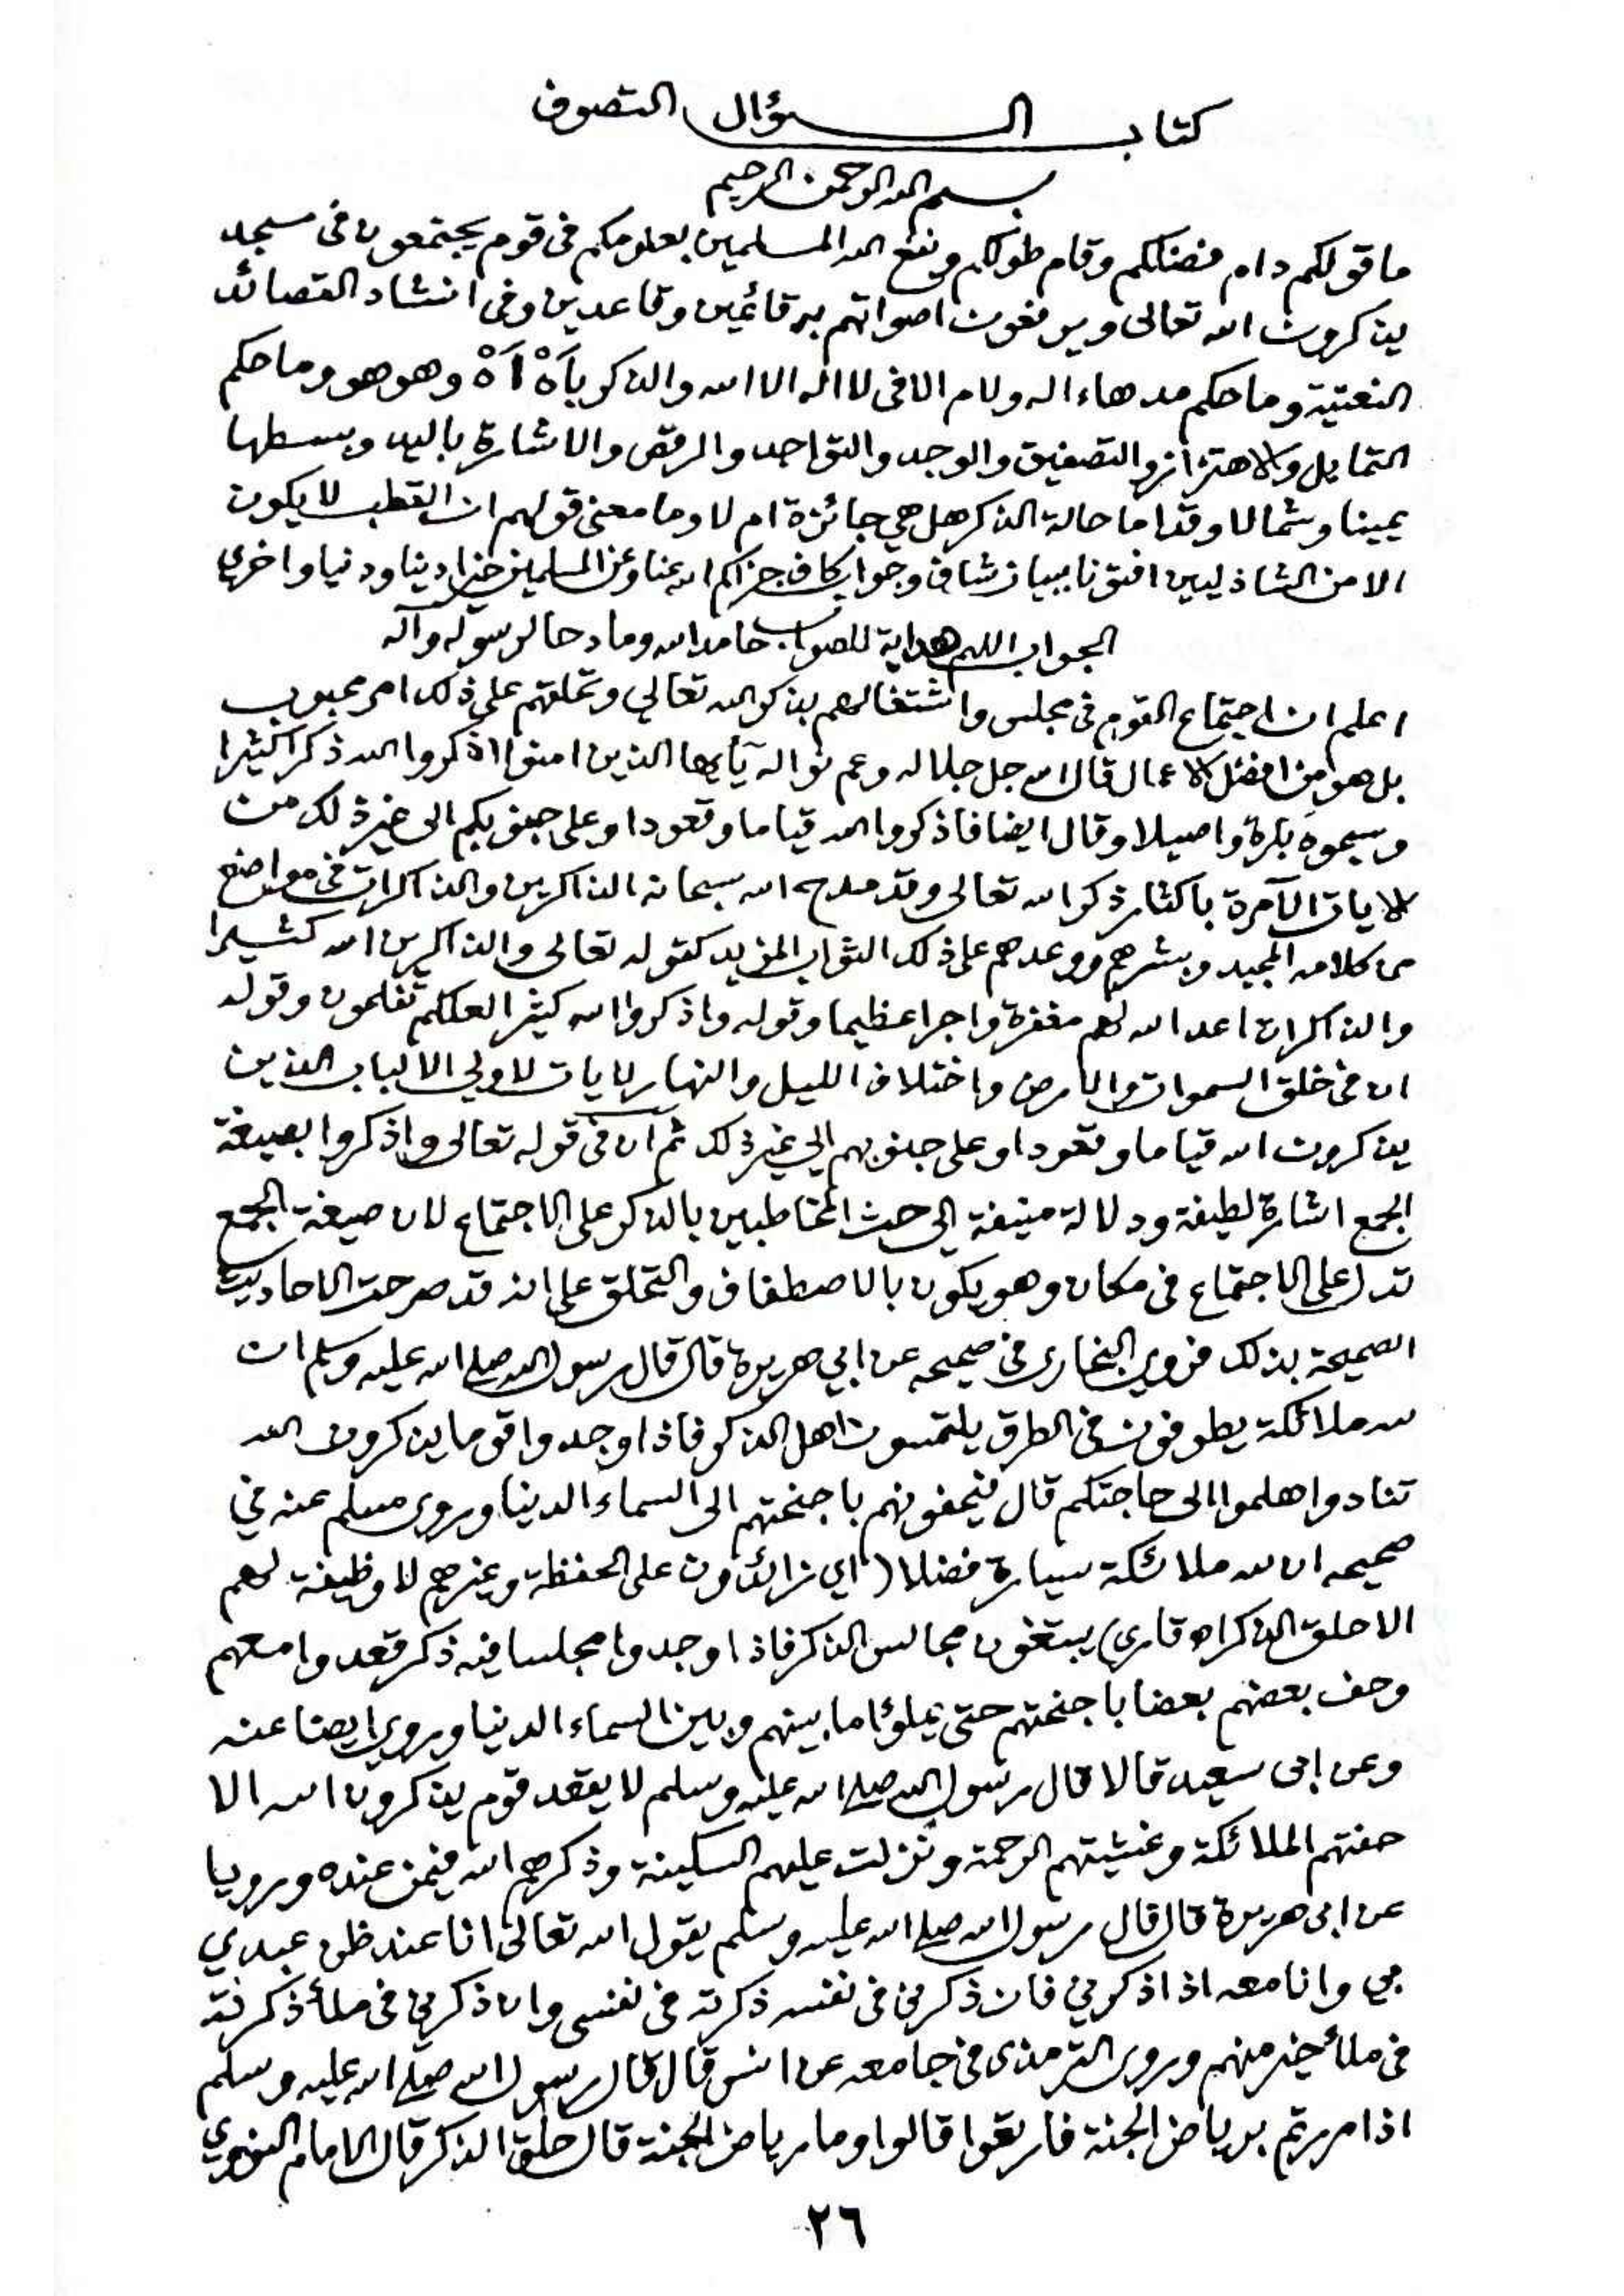 كتاب السؤال التصوف
بسم الله الرحمن الرحيم
ما قولكم دام فضلكم وقام طولكم ونفع الله المسلمين بعلومكم فى قوم يجتمعون فى مسجد
يذكرون الله تعالى ويرفعون اصواتهم به قائمين وقاعدين وفى انشاد القصائد
النعتية وما حكم مد هاء اله ولام الا فى لا اله الا الله والذكر بآهْ اَهْ وهو هو وما حكم
التمايل والاهتزاز والتصفيق والوجد والتواجد والرقص والاشارة باليد وبسطها
يمينا وشمالا وقداما حالة الذكر هل هي جائزة ام لا وما معنى قولهم ان القطب لا يكون
الا من الشاذليين افتونا ببيان شاف وجواب كاف جزاكم الله عنا وعن المسلمين خيرا دينا ودنيا واخرى
الجواب اللهم هداية للصواب حامدا لله ومادحا لرسوله وآله
اعلم ان اجتماع القوم فى مجلس واشتغالهم بذكر الله تعالي وتحلقهم على ذلك امر محبوب
بل هو من افضل الاعمال قال الله جل جلاله وعم نواله يآيها الذين امنوا اذكروا الله ذكرا كثيرا
وسبحوه بكرة واصيلا وقال ايضا فاذكروا الله قياما وقعودا وعلى جنوبكم الى غير ذلك من
الايات الآمرة باكثار ذكر الله تعالى وقد مدح الله سبحانه الذاكرين والذاكرات فى مواضع
من كلامه المجيد وبشرهم ووعدهم على ذلك الثواب المزيد كقوله تعالى والذاكرين الله كثيرا
والذاكرات اعد الله لهم مغفرة واجرا عظيما وقوله واذكروا الله كثيرا لعلكم تفلحون وقوله
ان فى خلق السموات والارض واختلاف الليل والنهار لايات لاولي الالباب الذين
يذكرون الله قياما وقعودا وعلى جنوبهم الي غير ذلك ثم ان فى قوله تعالى واذكروا بصيغة
الجمع اشارة لطيفة ودلالة منيفة الى حث المخاطبين بالذكر على الاجتماع لان صيغة الجمع
تدل على الاجتماع فى مكان وهو يكون بالاصطفاف والتحلق على انه قد صرحت الاحاديث
الصحيحة بذلك فروي البخارى فى صحيحه عن ابي هريرة قال قال رسول الله صلى الله عليه وسلم ان
لله ملائكة يطوفون فى الطرق يلتمسون اهل الذكر فاذا وجدوا قوما يذكرون الله
تنادوا هلموا الى حاجتكم قال فيحفونهم باجنحتهم الى السماء الدنيا وروى مسلم عنه في
صحيحه ان لله ملائكة سيارة فضلا (اي زائدون على الحفظة وغيرهم لا وظيفة لهم
الا حلق الذكر اه قاري) يبتغون مجالس الذكر فاذا وجدوا مجلسا فيه ذكر قعدوا معهم
وحف بعضهم بعضا باجنحتهم حتى يملؤا ما بينهم وبين السماء الدنيا وروي ايضا عنه
وعن ابى سعيد قالا قال رسول الله صلى الله عليه وسلم لا يقعد قوم يذكرون الله الا
حفتهم الملائكة وغشيتهم الرحمة ونزلت عليهم السكينة وذكرهم الله فيمن عنده ورويا
عن ابى هريرة قال قال رسول الله صلى الله عليه وسلم يقول الله تعالى انا عند ظن عبدي
بي وانا معه اذا ذكرني فان ذكرنى فى نفسه ذكرته فى نفسى وان ذكرني فى ملأ ذكرته
فى ملأ خير منهم وروى الترمذى فى جامعه عن انس قال قال رسول الله صلى الله عليه وسلم
اذا مررتم برياض الجنة فارتعوا قالوا وما رياض الجنة قال حلق الذكر قال الامام النووي
٢٦